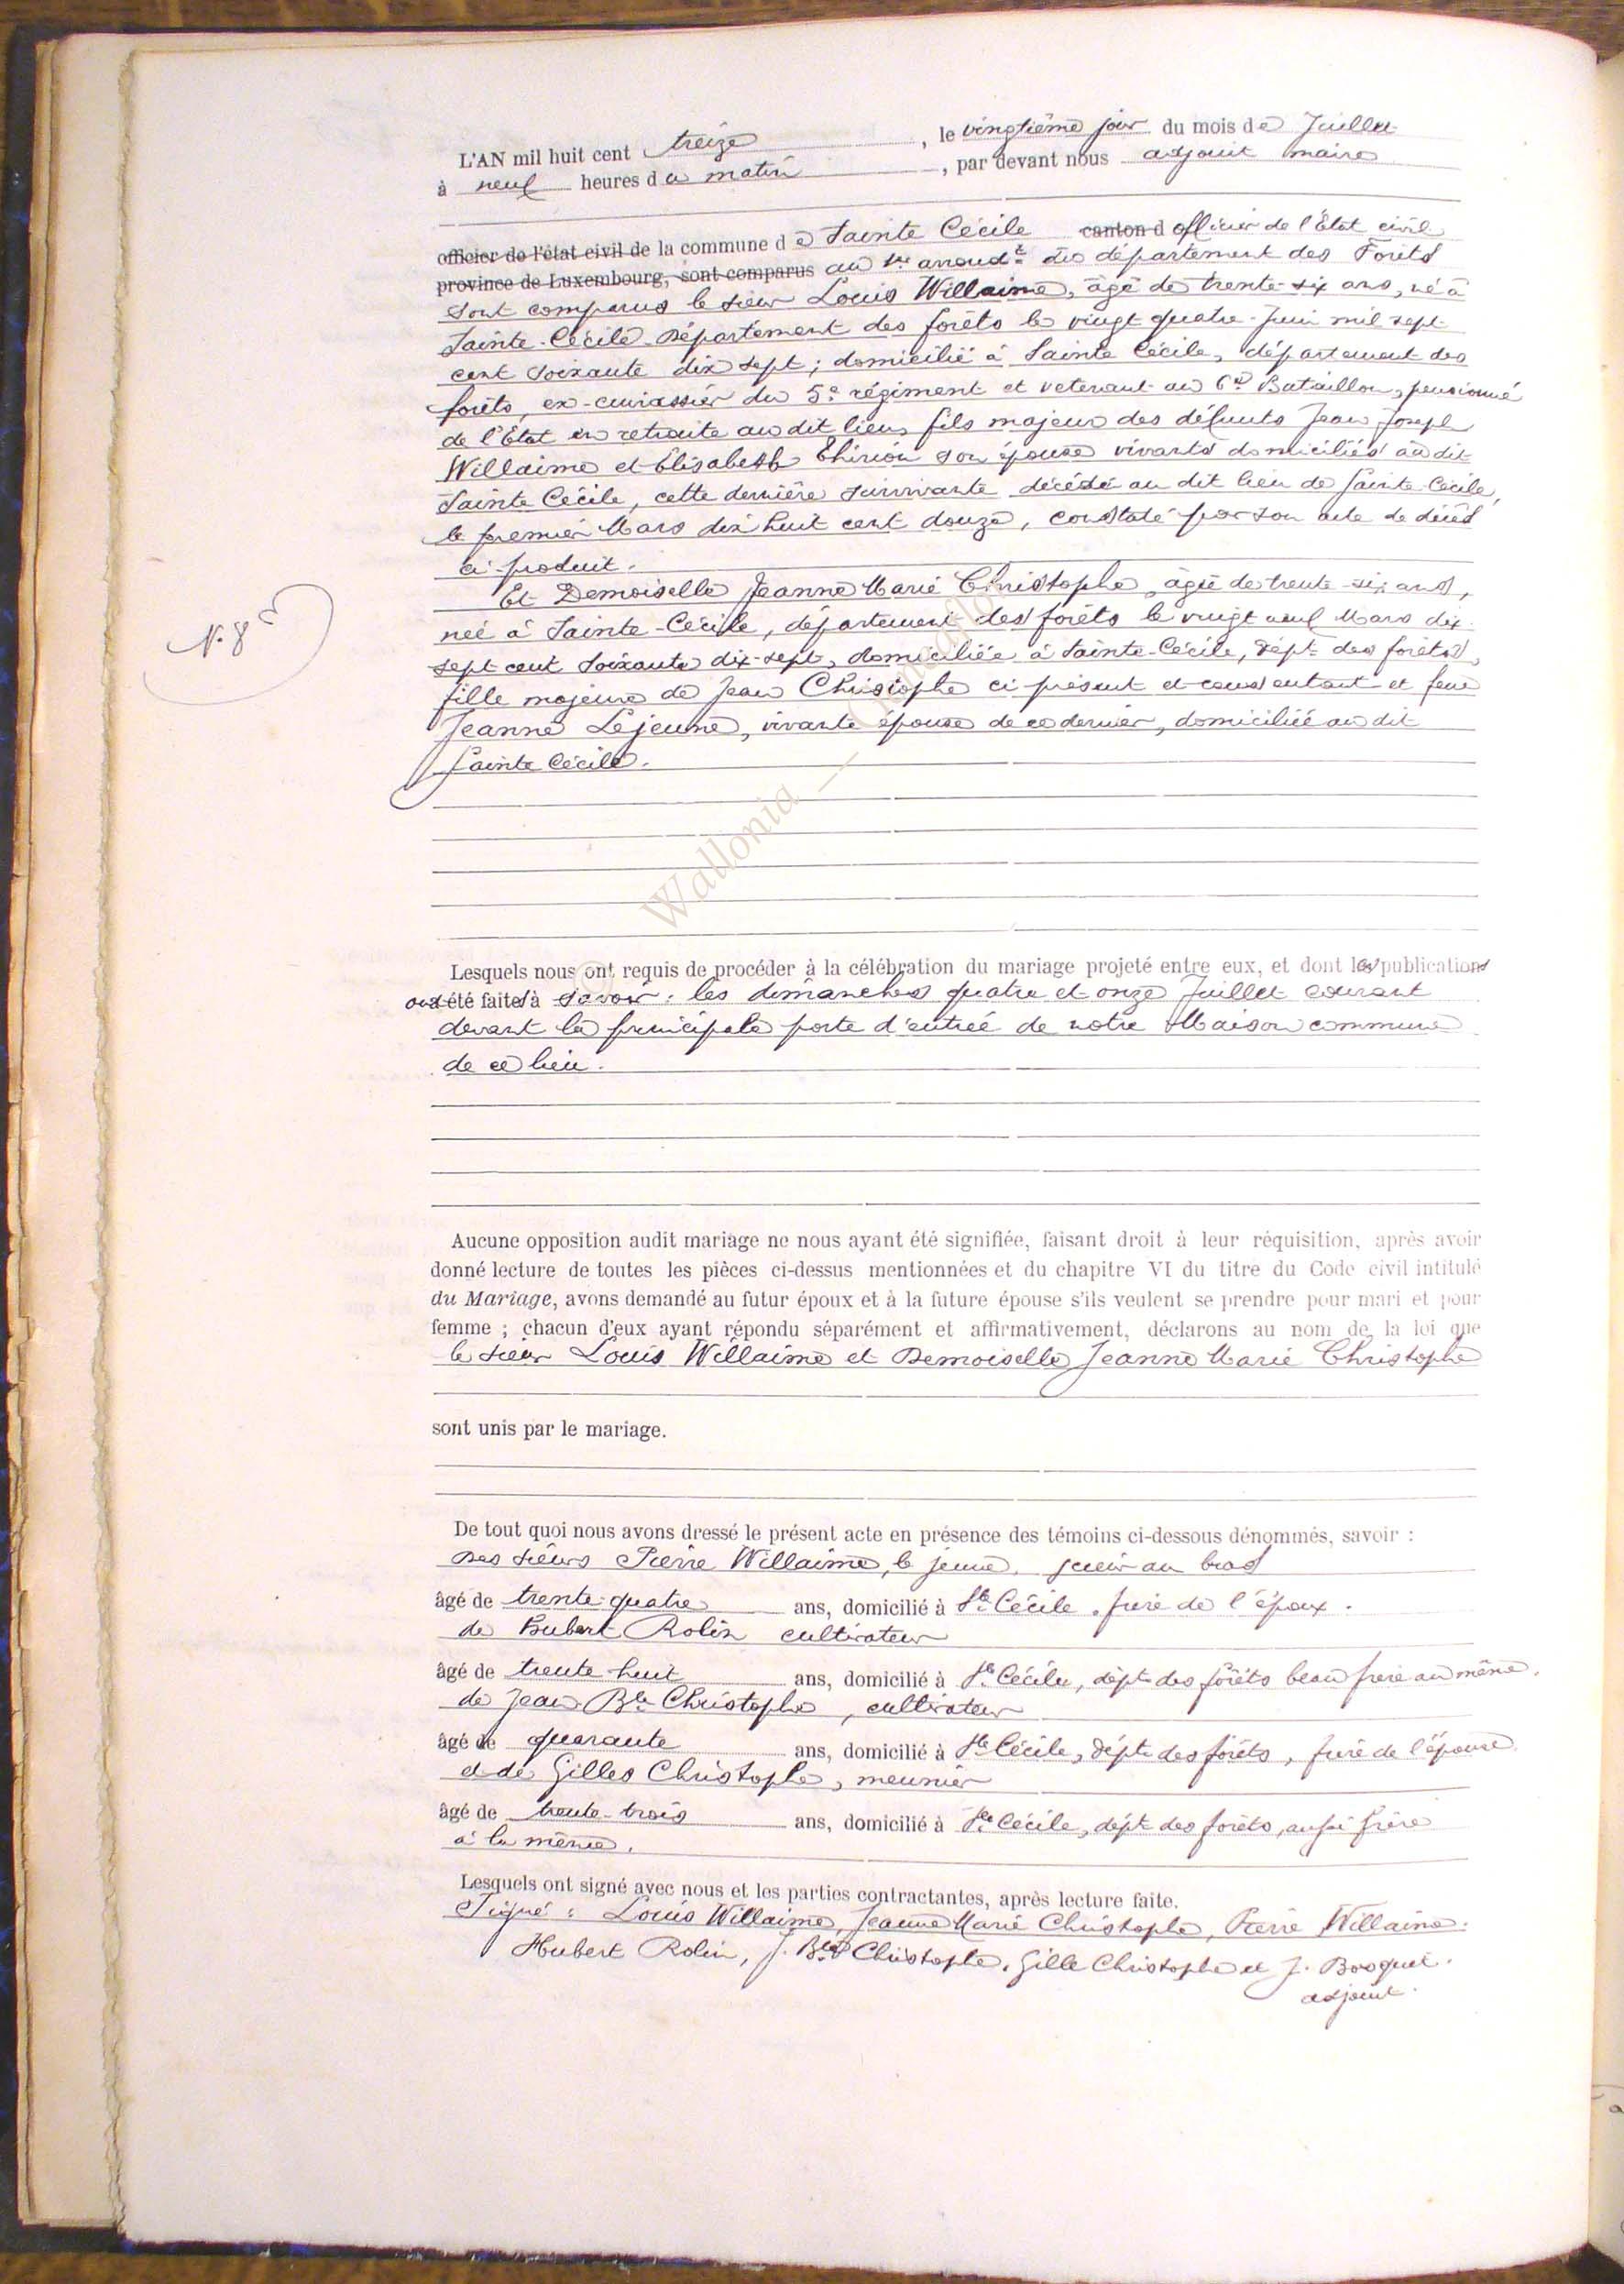 L'AN mil huit cent treize, le vingtième jour du mois de Juillet
à neuf heures du matin, par devant nous adjoint maire
officier de l'état civil de la commune de Sainte Cécile canton d officier de l'Etat civil
province de Luxembourg, sont comparus au arrondt du département des Forêts
sont comparus le sieur Louis Willaime, âgé de trente-six ans, né à
Sainte-Cécile Département des forêts le vingt quatre Juin mil sept
cent soixante dix sept; domicilié à Sainte Cécile, département des
forêts, ex-cuirassier du 5e régiment et veterant au 6e Bataillon, pensionné
de l'Etat en retraite au dit lieu, fils majeur des défunts Jean Joseph
Willaime et Elisabeth Thirion son épouse vivants domiciliés au dit
Sainte Cécile, cette dernière survivante décédé au dit lieu de Sainte-Cécile,
le premier Mars dix huit cent douze, constaté par son acte de décès
ci-produit.
Et Demoiselle Jeanne Marie Christophe, âgée de trente-six ans,
née à Sainte-Cécile, département des forêts le vingt neuf Mars dix-
N. 8
sept cent soixante dix-sept, domiciliée à Sainte-Cécile, dépt des forêts,
fille majeure de Jean Christophe ci présent et consentant et feue
Jeanne Lejeune, vivante épouse de ce dernier, domiciliée au dit
Sainte Cécile.
© Wallonia —
Lesquels nous ont requis de procéder à la célébration du mariage projeté entre eux, et dont les publications
ont été faites à savoir: les dimanches quatre et onze Juillet courant
devant la principale porte d'entrée de notre Maison commune
de ce lieu.
Aucune opposition audit mariage ne nous ayant été signifiée, faisant droit à leur réquisition, après avoir
donné lecture de toutes les pièces ci-dessus mentionnées et du chapitre VI du titre du Code civil intitulé
du Mariage, avons demandé au futur époux et à la future épouse s'ils veulent se prendre pour mari et pour
femme ; chacun d'eux ayant répondu séparément et affirmativement, déclarons au nom de la loi que
le sieur Louis Willaime et Demoiselle Jeanne Marie Christophe
sont unis par le mariage.
De tout quoi nous avons dressé le présent acte en présence des témoins ci-dessous dénommés, savoir :
Des sieurs Pierre Willaime, le jeune, au bras
âgé de trente-quatre ans, domicilié à Ste Cécile. frère de l'époux.
de Hubert Rolin cultivateur
âgé de trente-huit ans, domicilié à Ste Cécile, dépt des forêts beau frère au même.
de Jean Bte Christophe, cultivateur
âgé de quarante ans, domicilié à Ste Cécile, dépt des forêts, frère de l'épouse.
et de Gilles Christophe, meunier
âgé de trente-trois ans, domicilié à Ste Cécile, dépt des forêts, aussi frère
à la même.
Lesquels ont signé avec nous et les parties contractantes, après lecture faite.
Signé: Louis Willaime, Jeanne Marie Christophe, Pierre Willaime.
Hubert Rolin, J. Bte Christophe, Gille Christophe et J. Bosquet.
adjoint.